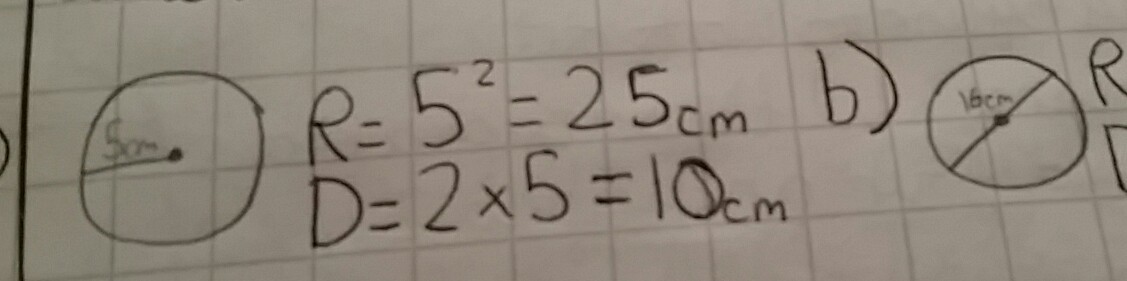 5cm
R= 5² = 25cm
D= 2×5 = 10cm
b)
16cm
R
D